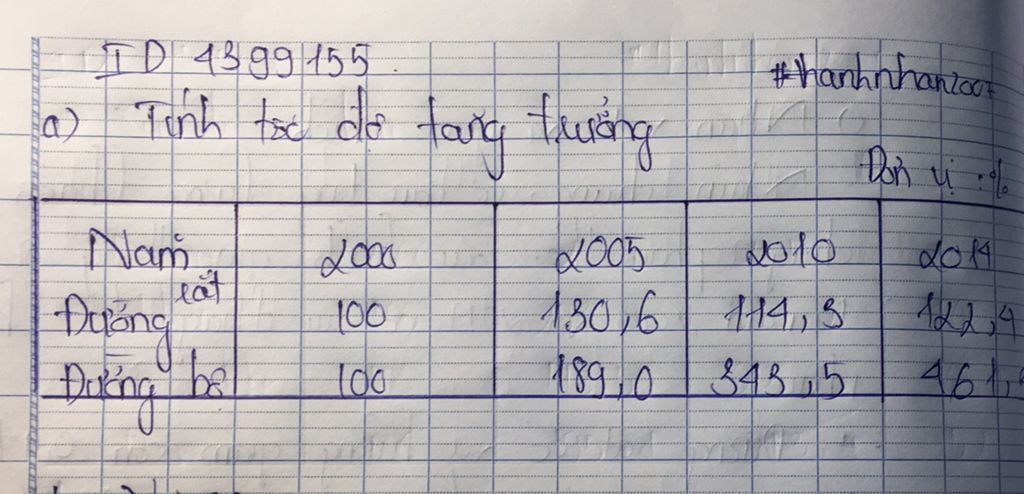 ID 4399155.
#hanhnhan2007
a) Tính tốc độ tăng trưởng
Đơn vị :%
Năm 2000 2005 2010 2014
Đường sắt 100 130,6 114,3 122,4
Đường bộ 100 189,0 343,5 461,